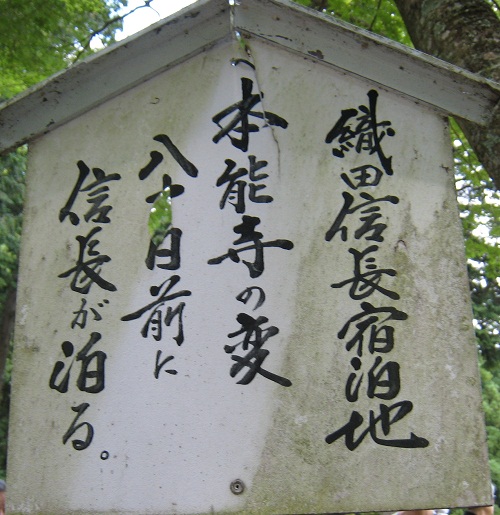 織田信長宿泊地
本能寺の変
八十日前に
信長が泊る。